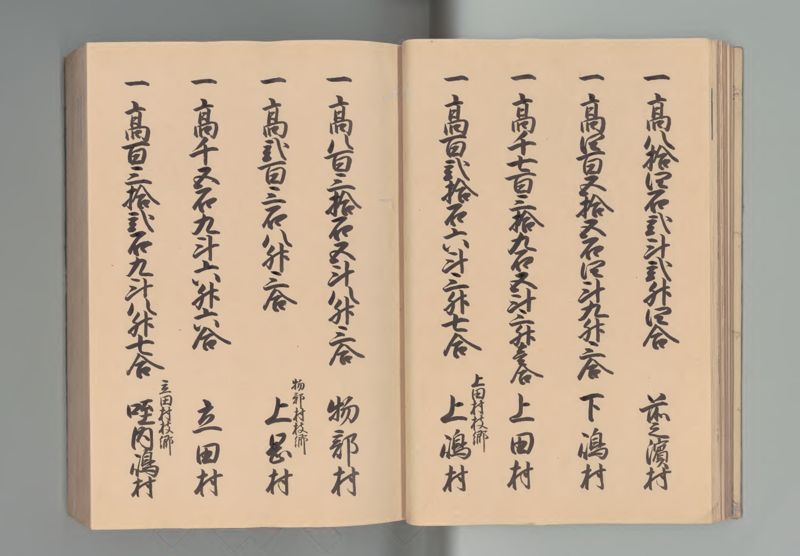 一高八拾四石弐斗弐升四合 前之濱村
一高四百五拾五石四斗九升三合 下嶋村
一高千七百三拾九石五斗三升壱合 上田村
一高百弐拾石六斗三升七合 上田村枝郷 上嶋村
一高八百三拾石五斗八升三合 物部村
一高弐百三石八升三合 物部村枝郷 上岡村
一高千五石九斗六升六合 立田村
一高百三拾弐石九斗八升七合 立田村枝郷 内嶋村